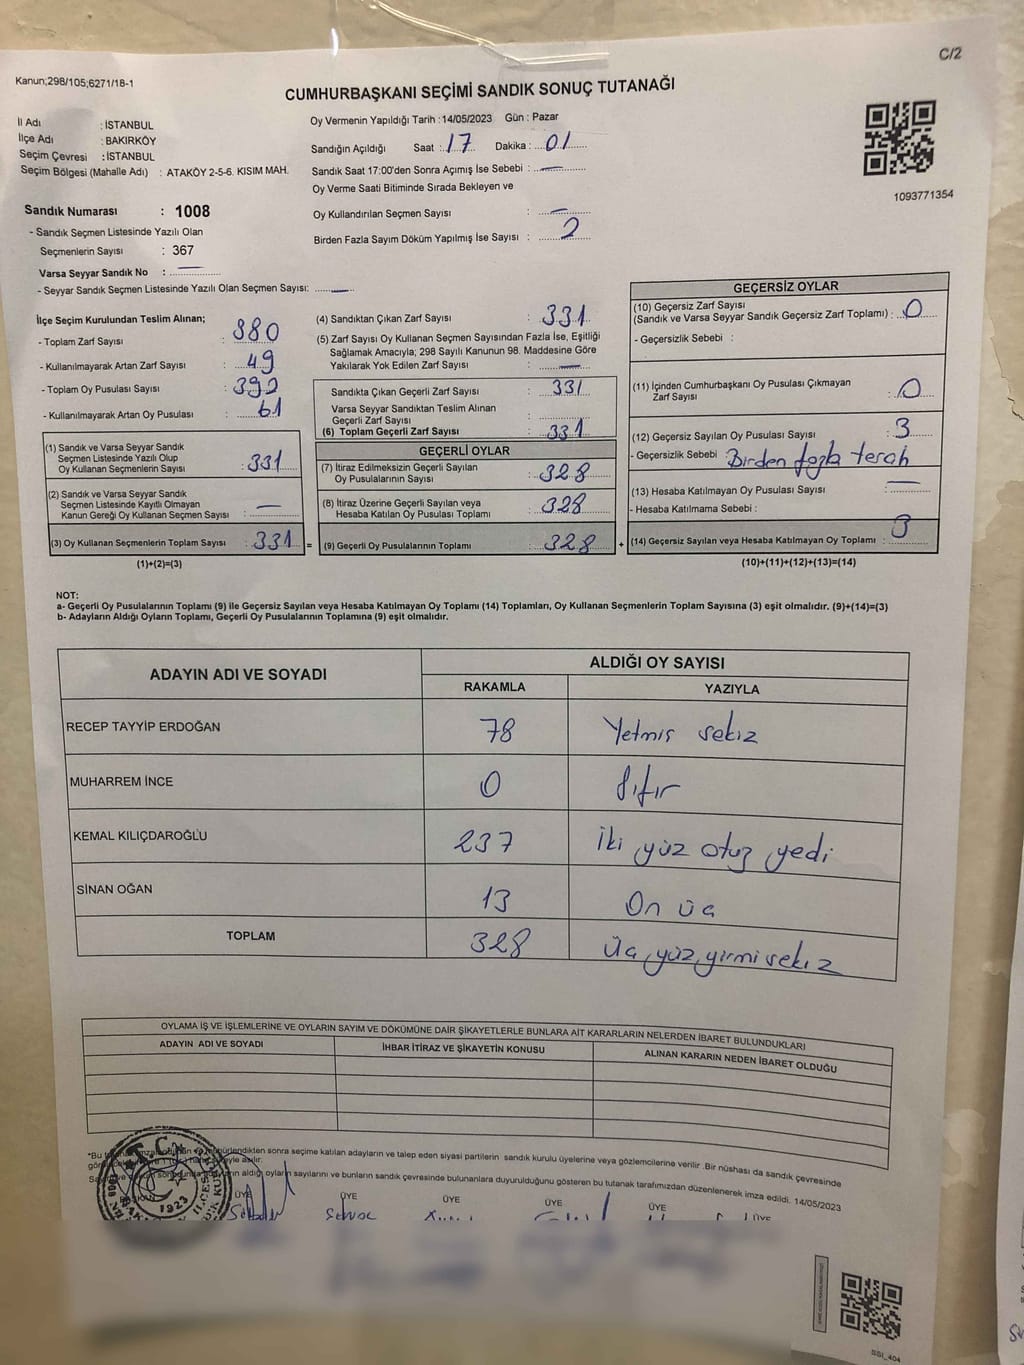 C/2
Kanun;298/105;6271/18-1
CUMHURBAŞKANI SEÇİMİ SANDIK SONUÇ TUTANAĞI
İl Adı : İSTANBUL
İlçe Adı : BAKIRKÖY
Seçim Çevresi : İSTANBUL
Seçim Bölgesi (Mahalle Adı) : ATAKÖY 2-5-6. KISIM MAH.
Sandık Numarası : 1008
- Sandık Seçmen Listesinde Yazılı Olan
Seçmenlerin Sayısı : 367
Varsa Seyyar Sandık No : —
- Seyyar Sandık Seçmen Listesinde Yazılı Olan Seçmen Sayısı: —
Oy Vermenin Yapıldığı Tarih : 14/05/2023 Gün : Pazar
Sandığın Açıldığı Saat : 17 Dakika : 01
Sandık Saat 17:00'den Sonra Açımış İse Sebebi : —
Oy Verme Saati Bitiminde Sırada Bekleyen ve
Oy Kullandırılan Seçmen Sayısı : —
Birden Fazla Sayım Döküm Yapılmış İse Sayısı : 2
1093771354
İlçe Seçim Kurulundan Teslim Alınan;
- Toplam Zarf Sayısı : 380
- Kullanılmayarak Artan Zarf Sayısı : 49
- Toplam Oy Pusulası Sayısı : 392
- Kullanılmayarak Artan Oy Pusulası : 61
(1) Sandık ve Varsa Seyyar Sandık
Seçmen Listesinde Yazılı Olup
Oy Kullanan Seçmenlerin Sayısı : 331
(2) Sandık ve Varsa Seyyar Sandık
Seçmen Listesinde Kayıtlı Olmayan
Kanun Gereği Oy Kullanan Seçmen Sayısı : —
(3) Oy Kullanan Seçmenlerin Toplam Sayısı : 331 =
(1)+(2)=(3)
(4) Sandıktan Çıkan Zarf Sayısı : 331
(5) Zarf Sayısı Oy Kullanan Seçmen Sayısından Fazla İse, Eşitliği
Sağlamak Amacıyla; 298 Sayılı Kanunun 98. Maddesine Göre
Yakılarak Yok Edilen Zarf Sayısı : —
Sandıkta Çıkan Geçerli Zarf Sayısı : 331
Varsa Seyyar Sandıktan Teslim Alınan
Geçerli Zarf Sayısı :
(6) Toplam Geçerli Zarf Sayısı : 331
GEÇERLİ OYLAR
(7) İtiraz Edilmeksizin Geçerli Sayılan
Oy Pusulalarının Sayısı : 328
(8) İtiraz Üzerine Geçerli Sayılan veya
Hesaba Katılan Oy Pusulası Toplamı : 328
(9) Geçerli Oy Pusulalarının Toplamı : 328 +
GEÇERSİZ OYLAR
(10) Geçersiz Zarf Sayısı
(Sandık ve Varsa Seyyar Sandık Geçersiz Zarf Toplamı) : 0
- Geçersizlik Sebebi :
(11) İçinden Cumhurbaşkanı Oy Pusulası Çıkmayan
Zarf Sayısı : 0
(12) Geçersiz Sayılan Oy Pusulası Sayısı : 3
- Geçersizlik Sebebi : Birden fazla tercih
(13) Hesaba Katılmayan Oy Pusulası Sayısı : —
- Hesaba Katılmama Sebebi :
(14) Geçersiz Sayılan veya Hesaba Katılmayan Oy Toplamı : 3
(10)+(11)+(12)+(13)=(14)
NOT:
a- Geçerli Oy Pusulalarının Toplamı (9) ile Geçersiz Sayılan veya Hesaba Katılmayan Oy Toplamı (14) Toplamları, Oy Kullanan Seçmenlerin Toplam Sayısına (3) eşit olmalıdır. (9)+(14)=(3)
b- Adayların Aldığı Oyların Toplamı, Geçerli Oy Pusulalarının Toplamına (9) eşit olmalıdır.
ADAYIN ADI VE SOYADI ALDIĞI OY SAYISI
RAKAMLA YAZIYLA
RECEP TAYYİP ERDOĞAN 78 Yetmiş sekiz
MUHARREM İNCE 0 Sıfır
KEMAL KILIÇDAROĞLU 237 İki yüz otuz yedi
SİNAN OĞAN 13 On üç
TOPLAM 328 Üç yüz yirmi sekiz
OYLAMA İŞ VE İŞLEMLERİNE VE OYLARIN SAYIM VE DÖKÜMÜNE DAİR ŞİKAYETLERLE BUNLARA AİT KARARLARIN NELERDEN İBARET BULUNDUKLARI
ADAYIN ADI VE SOYADI İHBAR İTİRAZ VE ŞİKAYETİN KONUSU ALINAN KARARIN NEDEN İBARET OLDUĞU
sonra seçime katılan adayların ve talep eden siyasi partilerin sandık kurulu üyelerine veya gözlemcilerine verilir .Bir nüshası da sandık çevresinde
aldığı oyların sayılarını ve bunların sandık çevresinde bulunanlara duyurulduğunu gösteren bu tutanak tarafımızdan düzenlenerek imza edildi. 14/05/2023
T.C.
1923
ÜYE ÜYE ÜYE ÜYE ÜYE ÜYE